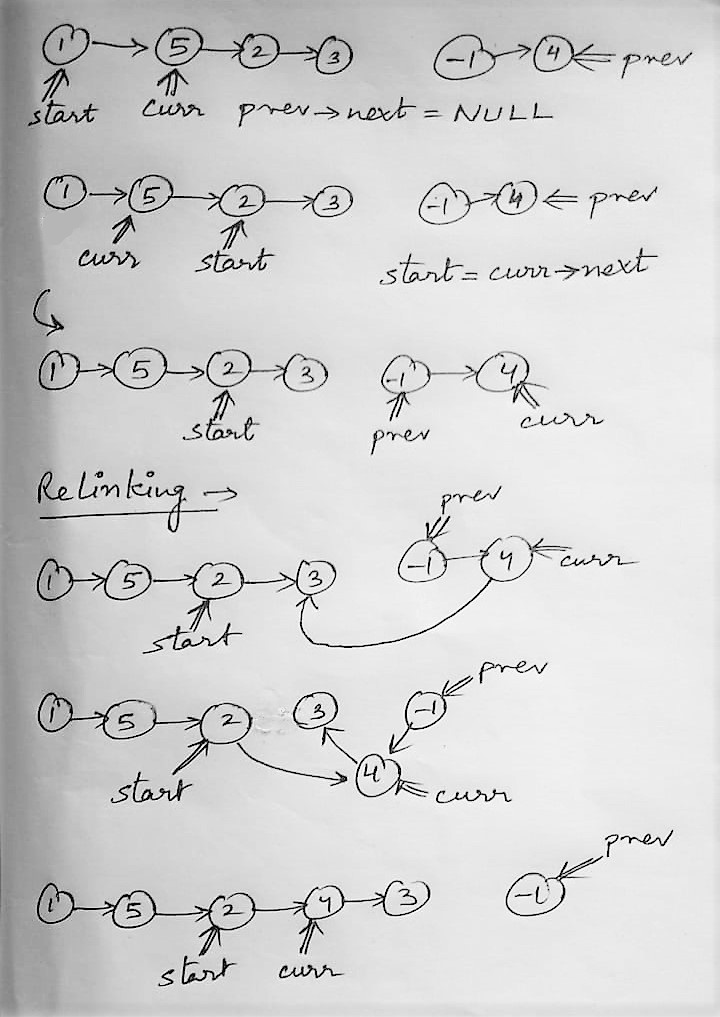 1 5 2 3 -1 4 prev
start curr prev→next = NULL
1 5 2 3 -1 4 prev
curr start
start = curr→next
1 5 2 3 -1 4
start prev curr
Relinking →
prev
1 5 2 3 -1 4 curr
start
prev
1 5 2 3 -1
4
start curr
prev
1 5 2 4 3 -1
start curr